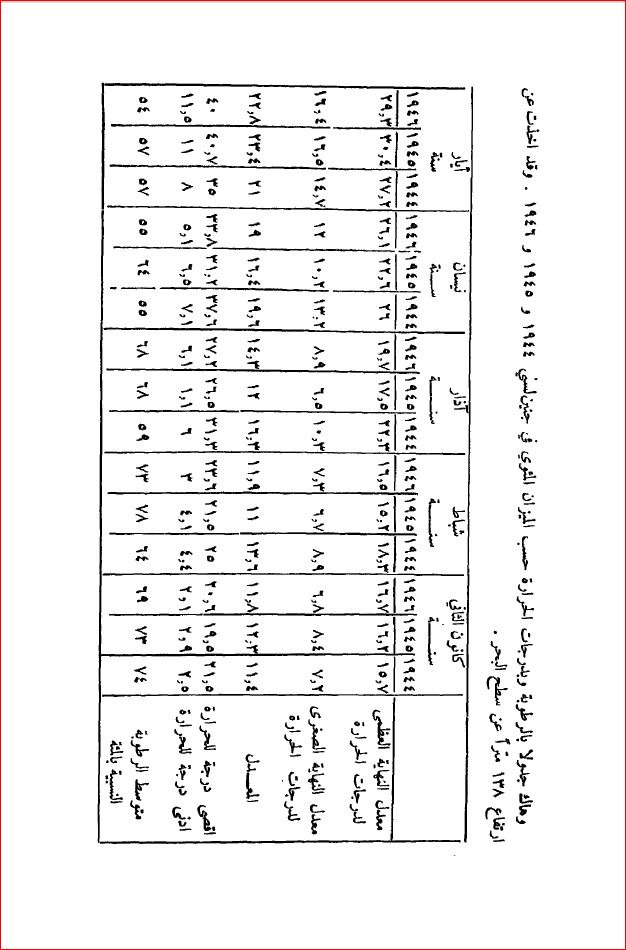 وهاك جدولا بالرطوبة وبدرجات الحرارة حسب الميزان المئوي في جنين لسني ١٩٤٤ و ١٩٤٥ و ١٩٤٦ . وقد اخذت عن
ارتفاع ١٣٨ متراً عن سطح البحر .
كانون الثاني شباط آذار نيسان أيار
سنة سنة سنة سنة سنة
١٩٤٤ ١٩٤٥ ١٩٤٦ ١٩٤٤ ١٩٤٥ ١٩٤٦ ١٩٤٤ ١٩٤٥ ١٩٤٦ ١٩٤٤ ١٩٤٥ ١٩٤٦ ١٩٤٤ ١٩٤٥ ١٩٤٦
معدل النهاية العظمى ١٥,٧ ١٦,٢ ١٦,٧ ١٨,٣ ١٥,٢ ١٦,٥ ٢٢,٣ ١٧,٥ ١٩,٧ ٢٦ ٢٢,٦ ٢٦,١ ٢٧,٢ ٣٠,٤ ٢٩,٣
لدرجات الحرارة
معدل النهاية الصغرى ٧,٢ ٨,٤ ٦,٨ ٨,٩ ٦,٧ ٧,٣ ١٠,٣ ٦,٥ ٨,٩ ١٣,٢ ١٠,٢ ١٢ ١٤,٧ ١٦,٥ ١٦,٤
لدرجات الحرارة
المعدل ١١,٤ ١٢,٣ ١١,٨ ١٣,٦ ١١ ١١,٩ ١٦,٣ ١٢ ١٤,٣ ١٩,٦ ١٦,٤ ١٩ ٢١ ٢٣,٤ ٢٢,٨
اقصى درجة للحرارة ٢١,٥ ١٩,٥ ٢٠,٦ ٢٥ ٢١,٥ ٢٣,٦ ٣١,٣ ٢٦,٥ ٢٧,٢ ٣٧,٦ ٣١,٢ ٣٣,٨ ٣٥ ٤٠,٧ ٤٠
ادنى درجة للحرارة ٢,٥ ٢,٩ ٢,١ ٤,٤ ٤,١ ٣ ٦ ١,١ ٦,١ ٧,١ ٦,٥ ٥,١ ٨ ١١ ١١,٥
متوسط الرطوبة ٧٤ ٧٣ ٦٩ ٦٤ ٧٨ ٧٣ ٥٩ ٦٨ ٦٨ ٥٥ ٦٤ ٥٥ ٥٧ ٥٧ ٥٤
النسبية بالمئة